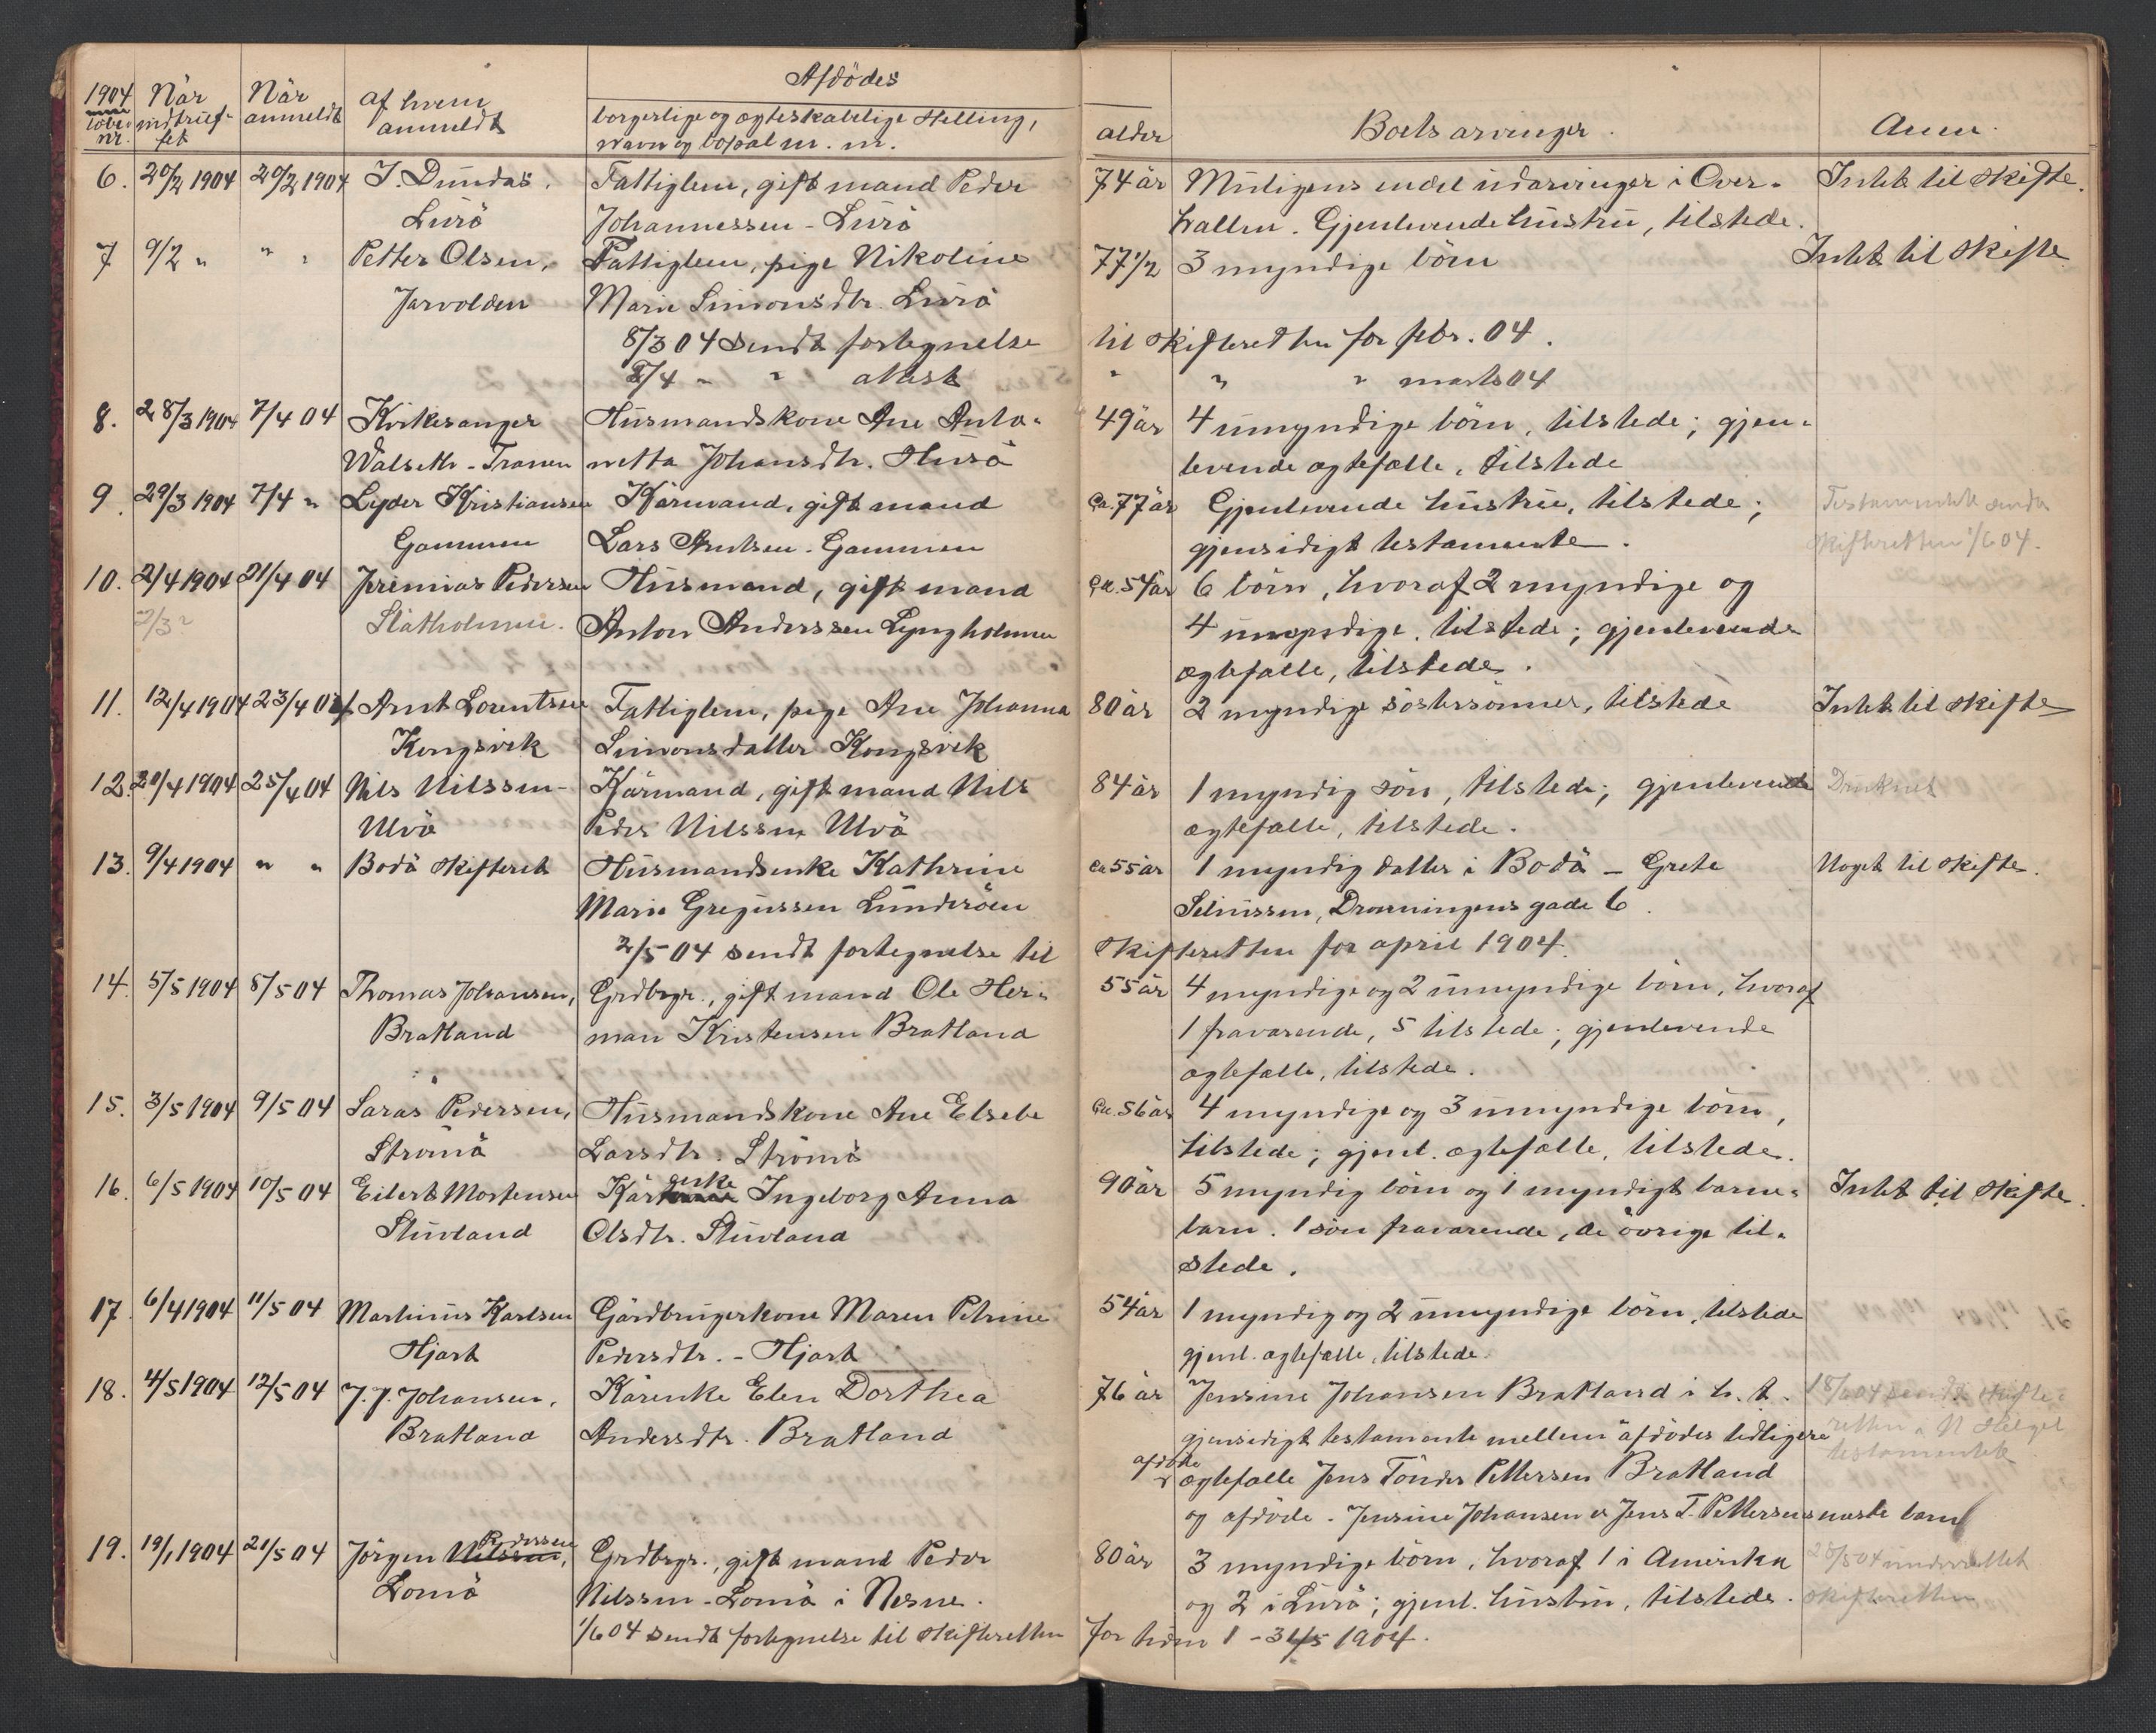 1904 När När af hvem Afdödes
löbe- indtruf- anmeldt anmeldt borgerlige og ægteskabelige Stilling, alder Boets arvinger. Anm.
nr. fet navn og bopæl m. m.
6. 20/2 1904 20/2 1904 I. Dundas, Fattiglem, gift mand Peder 74 år Muligens endel udarvinger i Over- Intet til skifte.
Lurö Johannessen - Lurö hallen. Gjenlevende hustru, tilstede.
7 9/2 " " " Petter Olsen, Fattiglem, pige Nikoline 77 1/2 3 myndige börn Intet til skifte
Jarvolden Marie Simonsdtr. Lurö
8/3 04 sendt fortegnelse til skifteretten for febr. 04.
5/4 " " attest " " " marts 04
8. 28/3 1904 7/4 04 Kirkesanger Husmandskone Ane Anto- 49 år 4 umyndige börn, tilstede; gjen-
Walseth - Tranen netta Johansdtr. Husö levende ægtefælle, tilstede
9. 29/3 1904 7/4 " Lyder Kristiansen Kårmand, gift mand ca. 77 år Gjenlevende hustru, tilstede; Testamentet sendt
Gammen Lars Arntsen. Gammen gjensidigt testamente. skifteretten 1/6 04.
10. 2/4 1904 21/4 04 Jeremias Pedersen Husmand, gift mand ca. 54 år 6 börn, hvoraf 2 myndige og
2/3 " Slatholmen. Anton Anderssen Lyngholmen 4 umyndige, tilstede; gjenlevende
ægtefælle, tilstede.
11. 12/4 1904 23/4 04 Arnt Lorentsen Fattiglem, pige Ane Johanna 80 år 2 myndige söstersönner, tilstede Intet til skifte
Kongsvik Simonsdatter Kongsvik
12. 20/4 1904 25/4 04 Nils Nilssen - Kårmand, gift mand Nils 84 år 1 myndig sön, tilstede; gjenlevende Druknet
Ulvö Peder Nilssen Ulvö ægtefælle, tilstede.
13. 9/4 1904 " " Bodö skifteret Husmandsenke Kathrine ca 55 år 1 myndig datter i Bodö - Grete Noget til skifte.
Marie Gregussen Lunderöen Seliussen, Dronningens gade 6.
2/5 04 sendt fortegnelse til skifteretten for april 1904.
14. 5/5 1904 8/5 04 Thomas Johansen, Grdbrgr., gift mand Ole Her- 55 år 4 myndige og 2 umyndige börn, hvoraf
Bratland man Kristensen Bratland 1 fraværende, 5 tilstede; gjenlevende
ægtefælle, tilstede.
15. 3/5 1904 9/5 04 Saras Pedersen, Husmandskone Ane Elsebe ca. 56 år 4 myndige og 3 umyndige börn,
Strömö Larsdtr. Strömö tilstede; gjenl. ægtefælle, tilstede.
16. 6/5 1904 10/5 04 Eilert Mortensen Kårenke Ingeborg Anna 90 år 5 myndig börn og 1 myndigt barne- Intet til skifte.
Stuvland Olsdtr. Stuvland barn. 1 sön fraværende, de övrige til-
stede.
17. 6/4 1904 11/5 04 Martinus Karlsen Gårdbrugerkone Maren Petrine 54 år 1 myndig og 2 umyndige börn, tilstede
Hjart Pedersdtr. - Hjart gjenl. ægtefælle, tilstede.
18. 4/5 1904 12/5 04 J. J. Johansen, Kårenke Elen Dorthea 76 år Jensine Johansen Bratland i h. t. 18/5 04 sendt skifte-
Bratland Andersdtr. Bratland gjensidigt testamente mellem afdödes tidligere retten i N Helgel
afdöde ægtefælle Jens Tönder Pettersen Bratland testamentet
og afdöde. Jensine Johansen er Jens T. Pettersens næste barn
19. 19/1 1904 21/5 04 Jörgen Nilssen, Pederssen Grdbrgr., gift mand Peder 80 år 3 myndige börn, hvoraf 1 i Amerika 28/5 04 underrettet
Lomö Nilssen - Lomö i Nesne. og 2 i Lurö; gjenl. hustru, tilstede. skifteretten
1/6 04 sendt fortegnelse til skifteretten for tiden 1 - 31/5 1904.